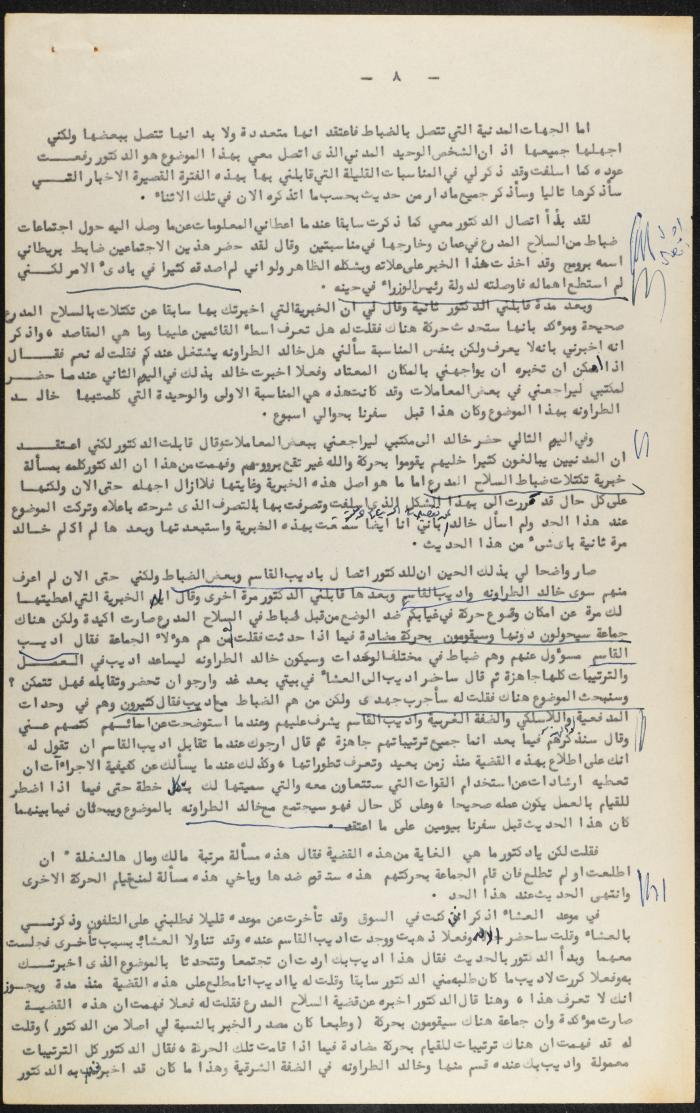 - ٨ -
اما الجهات المدنية التي تتصل بالضباط فاعتقد انها متعددة ولا بد انها تتصل ببعضها ولكني
اجهلها جميعها اذ ان الشخص الوحيد المدني الذى اتصل معي بهذا الموضوع هو الدكتور رفعــت
عوده كما اسلفت وقد ذكر لي في المناسبات القليلة التي قابلني بها بهذه الفترة القصيرة الاخبار التــي
سأذكرها تاليا وسأذكر جميع مادار من حديث بحسب ما اتذكره الان في تلك الاثناء ٠
لقد بدأ اتصال الدكتور معي كما ذكرت سابقا عندما اعطاني المعلومات عن ما وصل اليه حول اجتماعات
ضباط من السلاح المدرع في عمان وخارجها في مناسبتين وقال لقد حضر هذين الاجتماعين ضابط بريطاني
اسمه بروميج وقد اخذت هذا الخبر على علاته وبشكله الظاهر ولو اني لم اصدقه كثيرا في بادىء الامر لكــني
لم استطع اهماله فاوصلته لدولة رئيس الوزراء في حينه ٠
وبعد مدة قابلني الدكتور ثانية وقال لي ان الخبرية التي اخبرتك بها سابقا عن تكتلات بالسلاح المدرع
صحيحة ومؤكد بانها ستحدث حركة هناك فقلت له هل تعرف اسماء القائمين عليها وما هي المقاصد ، واذكر
انه اخبرني بانه لا يعرف ولكن بنفس المناسبة سألني هل خالد الطراونه يشتغل عندكم فقلت له نعم فقـــال
اذا امكن ان تخبره ان يواجهني بالمكان المعتاد وفعلا اخبرت خالد بذلك في اليوم الثاني عندما حضــر
لمكتبي ليراجعني في بعض المعاملات وقد كانت هذه هي المناسبة الاولى والوحيدة التي كلمت بها خالــد
الطراونه بهذا الموضوع وكان هذا قبل سفرنا بحوالي اسبوع ٠
وفي اليوم التالي حضر خالد الى مكتبي ليراجعني ببعض المعاملات وقال قابلت الدكتور لكني اعتقــد
ان المدنيين يبالغون كثيرا خليهم يقوموا بحركة والله غير تقع برووسهم وفهمت من هذا ان الدكتور كلمه بمسألة
خبرية تكتلات ضباط السلاح المدرع اما ما هو اصل هذه الخبرية وغايتها فلا ازال اجهله حتى الان ولكنها
على كل حال قد مررت الي بهذا الشكل الذى اسلفت وتصرفت بها بالتصرف الذى شرحته باعلاه وتركت الموضوع
عند هذا الحد ولم اسأل خالد بانني انا ايضا سمعت بهذه الخبرية واستبعدتها وبعدها لم اكلم خالـد
مرة ثانية باى شىء من هذا الحديث ٠
صار واضحا لي بذلك الحين ان للدكتور اتصال باديب القاسم وبعض الضباط ولكني حتى الان لم اعرف
منهم سوى خالد الطراونه واديب القاسم وبعدها قابلني الدكتور مرة اخرى وقال ان الخبرية التي اعطيتها
لك مرة عن امكان وقوع حركة في غيابكم ضد الوضع من قبل ضباط في السلاح المدرع صارت اكيدة ولكن هناك
جماعة سيحولون دونها وسيقومون بحركة مضادة فيما اذا حدثت فقلت من هم هؤلاء الجماعة فقال اديــب
القاسم مسؤول عنهم وهم ضباط في مختلف الوحدات وسيكون خالد الطراونه ليساعد اديب في العمـــل
والترتيبات كلها جاهزة ثم قال ساحضر اديب الى العشاء في بيتي بعد غد وارجو ان تحضر وتقابله فهل تتمكن ؟
وسنبحث الموضوع هناك فقلت له سأجرب جهدى ولكن من هم الضباط مع اديب فقال كثيرون وهم في وحدات
المدفعية واللاسلكي والضفة الغربية واديب القاسم يشرف عليهم وعندما استوضحت عن اسمائهم كتمهم عــني
وقال سنذكرهم فيما بعد انما جميع ترتيباتهم جاهزة ثم قال ارجوك عندما تقابل اديب القاسم ان تقول له
انك على اطلاع بهذه القضية منذ زمن بعيد وتعرف تطوراتها ، وكذلك عندما يسألك عن كيفية الاجراءآت ان
تعطيه ارشادات عن استخدام القوات التي ستتعاون معه والتي سميتها لك خطة حتى فيما اذا اضطر
للقيام بالعمل يكون عمله صحيحا ، وعلى كل حال فهو سيجتمع مع خالد الطراونه بالموضوع ويبحثان فيما بينهما
كان هذا الحديث قبل سفرنا بيومين على ما اعتقد ٠
فقلت لكن يا دكتور ما هي الغاية من هذه القضية فقال هذه مسألة مرتبة مالك ومال هالشغلة ٠ ان
اطلعت او لم تطلع فان قام الجماعة بحركتهم هذه ستقوم ضدها وياخي هذه مسألة لمنع قيام الحركة الاخرى
وانتهى الحديث عند هذا الحد ٠
في موعد العشاء اذكر انني كنت في السوق وقد تأخرت عن موعده قليلا فطلبني على التلفون وذكرنــي
بالعشاء وقلت ساحضر الان وفعلا ذهبت ووجدت اديب القاسم عنده وقد تناولا العشاء بسبب تأخرى فجلست
معهما وبدأ الدكتور بالحديث فقال هذا اديب بك اردت ان تجتمعا وتتحدثا بالموضوع الذى اخبرتــك
به وفعلا كررت لاديب ما كان طلبه مني الدكتور سابقا وقلت له يا اديب انا مطلع على هذه القضية منذ مدة ويجــوز
انك لا تعرف هذا ، وهنا قال الدكتور اخبره عن قضية السلاح المدرع فقلت له فعلا فهمت ان هذه القضيــة
صارت مؤكدة وان جماعة هناك سيقومون بحركة ( وطبعا كان مصدر الخبر بالنسبة لي اصلا من الدكتور ) وقلت
له قد فهمت ان هناك ترتيبات للقيام بحركة مضادة فيما اذا قامت تلك الحركة ، فقال الدكتور كل الترتيبات
معمولة واديب بك عنده قسم منها وخالد الطراونه في الضفة الشرقية وهذا ما كان قد اخبرني به الدكتور